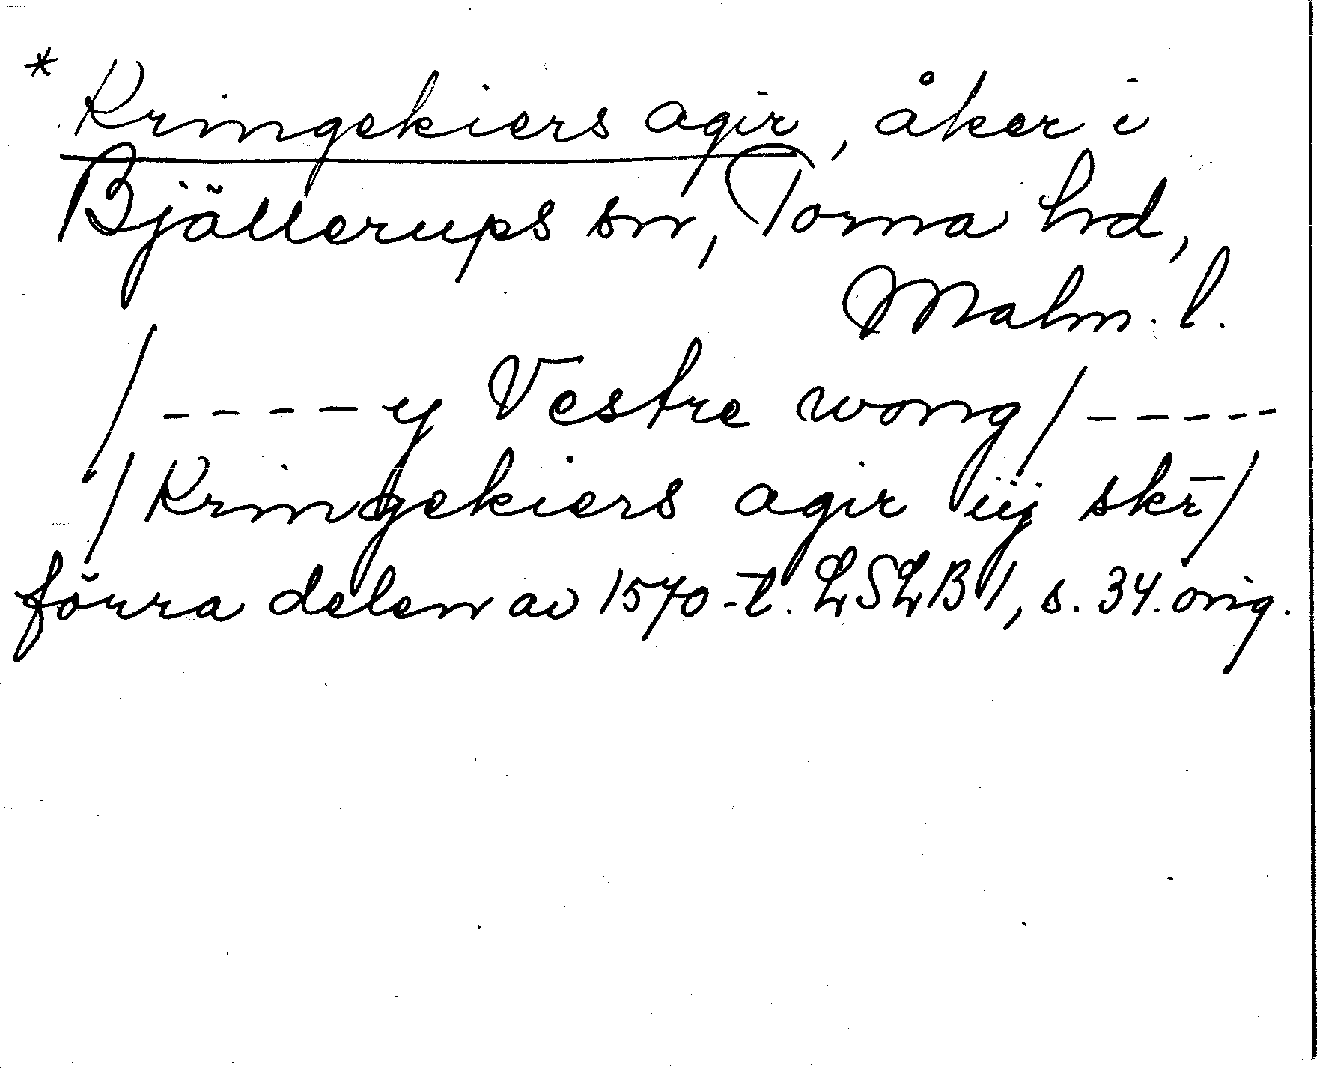 * Kringekiers agir, åker i
Bjällerups sn, Torna hd,
Malm. l.
/-----y Vestre wong/-----
/Kringekiers agir iij skr̄/
förra delen av 1570-t. LSLB1, s. 34. orig.